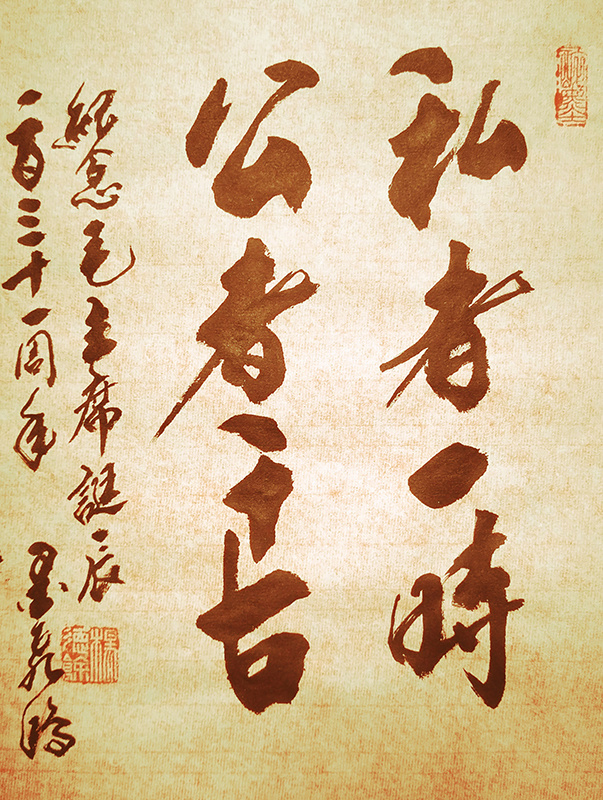 私者一時
公者千古
紀念毛主席誕辰
一百三十一周年